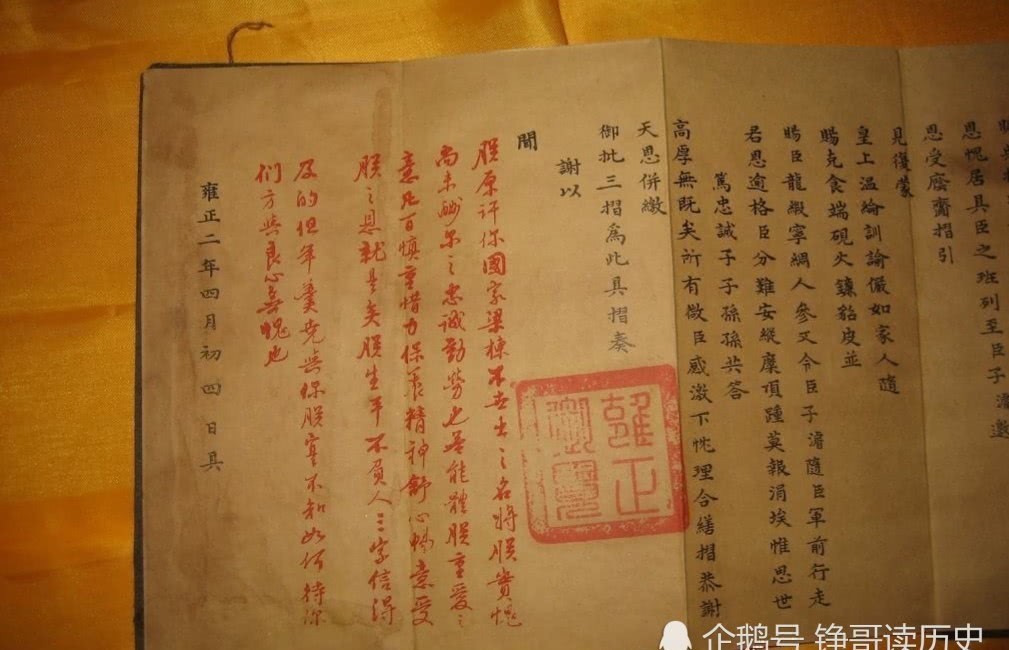 恩愧居具臣之班列至臣子濬邀
恩受廕齎摺引
見復蒙
皇上溫綸訓諭儼如家人隨
賜克食端硯火鐮貂皮並
賜臣龍緞寧綢人參又令臣子濬隨臣軍前行走
君恩逾格臣分難安縱糜頂踵莫報涓埃惟思世
篤忠誠子子孫孫共答
高厚無既矣所有微臣感激下忱理合繕摺恭謝
天恩併繳
御批三摺為此具摺奏
謝以
聞
朕原許你國家梁棟不世出之名將朕實愧
尚未酬尔之忠誠勤勞也若能體朕重愛之
意凡百慎重惜力保養精神舒心暢意受
朕之恩就是矣朕生平不負人三字信得
及的但年羹堯與你朕實不知如何待你
們方與良心無愧也
雍正二年四月初四日具
雍正御覽
企鹅号 铮哥读历史